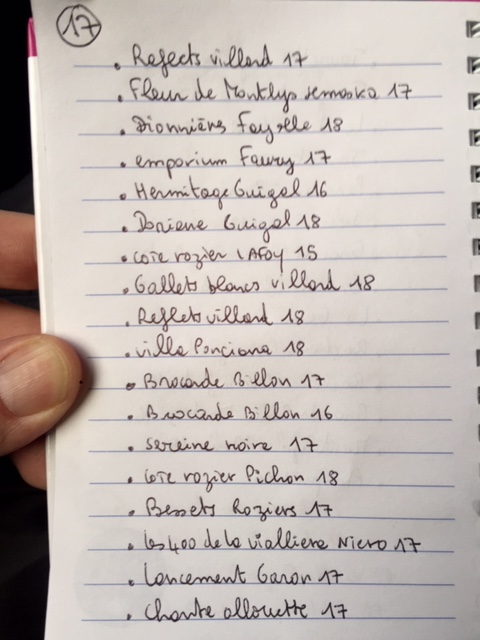 17
. Reflects villard 17
. Fleur de Montlys semaska 17
. Pionnières Fayolle 18
. emporium Faury 17
. Hermitage Guigal 16
. Doriane Guigal 18
. cote rozier LAFoy 15
. Gallets blancs villard 18
. Reflets villard 18
. villa Ponciana 18
. Brocarde Billon 17
. Brocarde Billon 16
. sereine noire 17
. cote rozier Pichon 18
. Bessets Roziers 17
. les 400 de la vialliere Niero 17
. Lancement Garon 17
. chante allouette 17